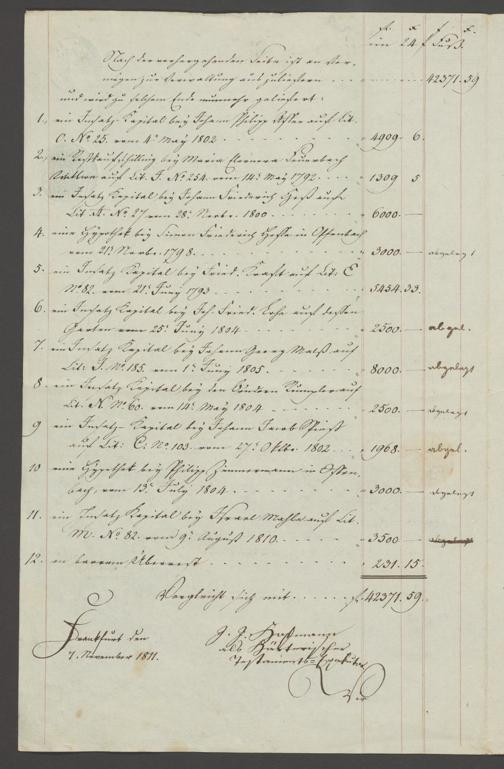 im 24 f Fuß.
Nach der vorhergehenden Seite ist an Ver-
mögen zur Verwaltung auszuliefern 42371.59
und wird zu solchem Ende nunmehr geliefert:
1., ein Insatz Kapital bey Johann Philipp auf Lit.
O. No. 25. vom 4. May 1802 4909. 6.
2., ein bey Maria Eleonora Feuerbach
auf Lit. F. No. 254. vom 14. May 1792 1309 5
3. ein Insatz Kapital bey Johann Friederich Heß auf
Lit. A. No. 27 vom 28. Novbr. 1800 6000.—
4. eine Hypothek bey Friederich Hesse in Offenbach
vom 21. Novbr. 1798. 3000.— abgelegt
5. ein Insatz Kapital bey Fried. Kraft auf Lit. E
No. 82. vom 21. Juny 1793 5454.33.
6. ein Insatz Kapital bey Joh. Fried. auf dessen
Garten vom 25. Juny 1804 2500.— abgel.
7. ein Insatz Kapital bey Johann Georg auf
Lit. J. No. 185. vom 1. Juny 1805. 8000.— abgelegt
8. ein Insatz Kapital bey den Kindern auf
Lit. N. No. 60. vom 14. May 1804 2500.— abgelegt
9 ein Insatz Kapital bey Johann Jacob
auf Lit: C. No. 103. vom 27. Oktbr. 1802 1968.— abgel.
10 eine Hypothek bey Philipp Zimmermann in Offen-
bach, vom 13. July 1804. 3000.— abgelegt
11. ein Insatz Kapital bey Israel auf Lit.
M. No. 82. vom 9. August 1810. 3500.— abgelegt
12. an baarem Überrest 231. 15.
Vergleicht sich mit f. 42371. 59.
Frankfurt den
7. November 1811.
J. J.
als
Testaments-Exekutor